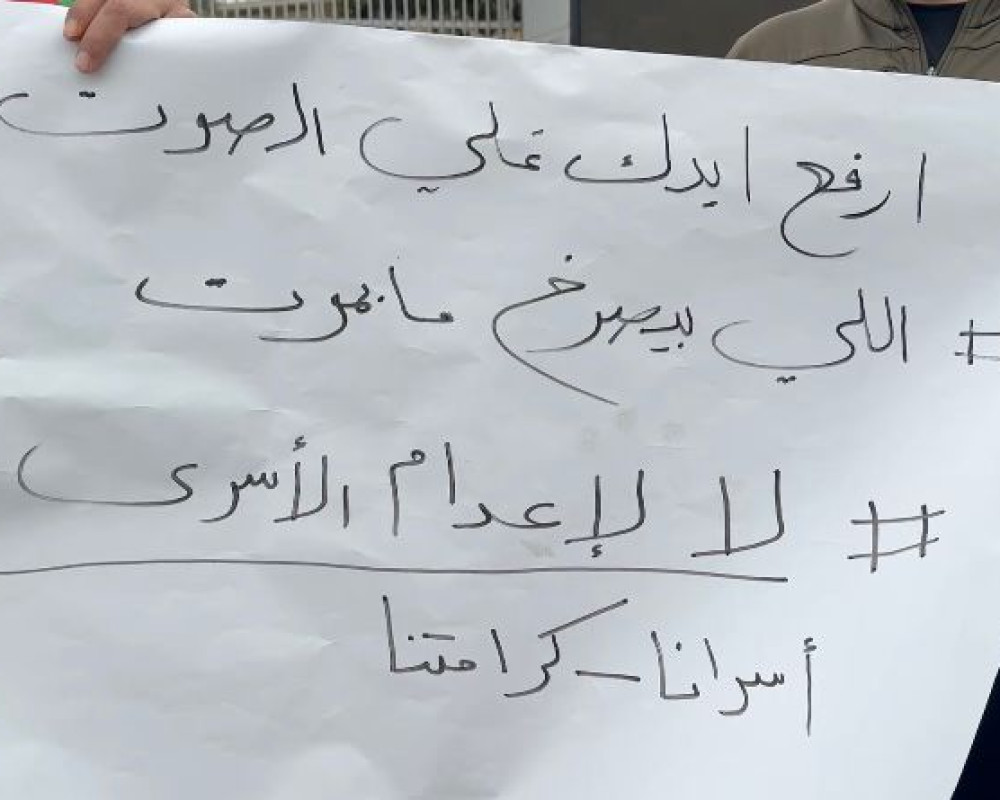 ارفع ايدك علي الصوت
# اللي بيصرخ ما بموت
# لا لإعدام الأسرى
أسرانا - كرامتنا